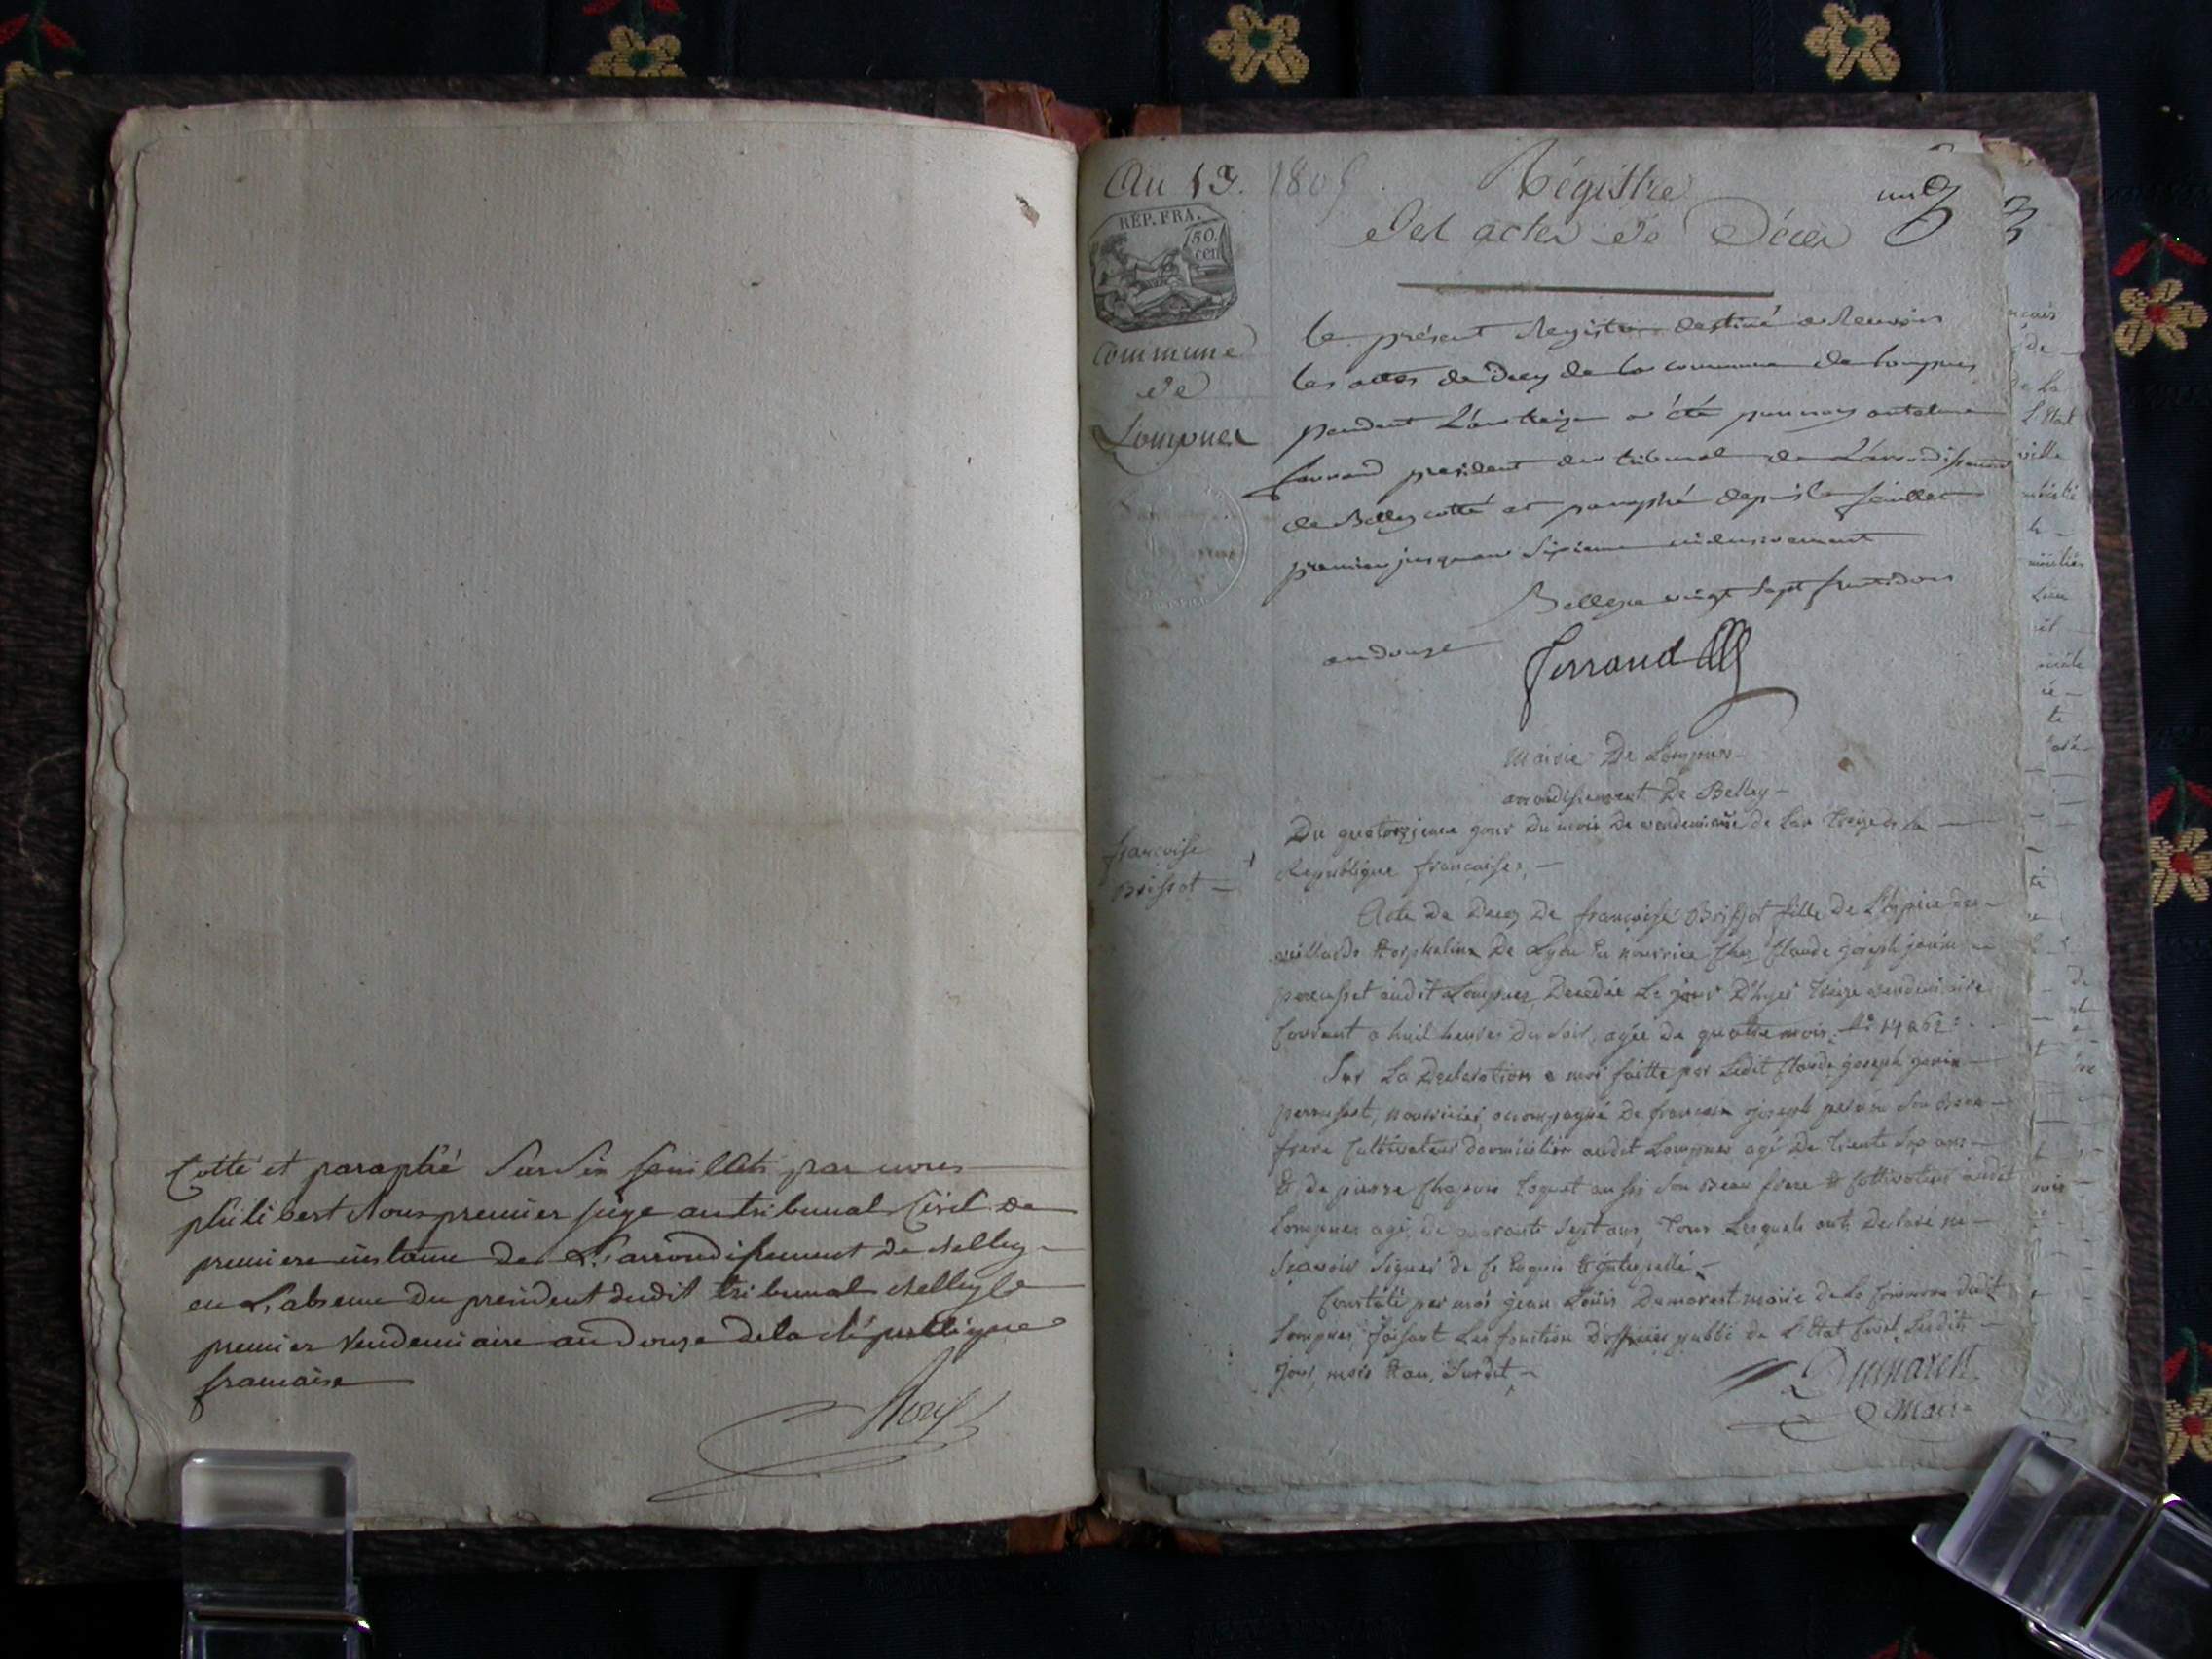 Cotté et paraphé Sur Six feuillets par nous
philibert Roux premier juge au tribunal Civil de
premiere instance de L'arrondissement de Belley
en L'absence du president dudit tribunal Belley le
premier Vendemiaire an Douze de la République
francaise
Roux
An 13. 1805
Régistre
Des actes de Décès
un
RÉP. FRA.
50.
cen
Commune
de
Lompnes
le présent Registre destiné a Recevoir
les actes de Decez de la commune de lompnes
pendant L'an treize a été par nous antelme
ferrand president du tribunal de L'arrondissement
de Belley cotté et paraphé depuis le feuillet
premier jusquau Sixieme inclusivement
Belley ce vingt Sept fructidor
an douze
ferrand
Mairie De Lompnes
arrondissement De Belley
francoise
Brissot
Du quatorzieme jour Du mois De vendemiaire de Lan treize de la
Republique francaise,
Acte De Decez De françoise Brissot fille De L'hospice des
vieillards & orphelins De Lyon En nourrice Chez Claude joseph jenin
perrusset audit Lompnes, Decedée Le jour D'hyer treize vendemiaire
Courant a huit heures Du soir, agée De quatre mois,
Sur La Declaration a moi faitte par Ledit Claude joseph jenin
perrusset, nourricier, accompagné De francois joseph Son Beau
frere Cultivateur domicilier audit Lompnes agé De trente Six ans
& de pierre Chapuis Coquet aussi Son Beau frere & Cultivateur audit
Lompnes agé de quarante Sept ans, Tous Lesquels ont Declaré ne
Sçavoir Signer de ce Enquis & interpellé,
Constaté par moi jean Louis Dumarest maire de La Commune Dudit
Lompnes, faisant Les fonction D'officier public de L'Etat Civil, Lesdits
jour, mois & an, Surdit,
Dumarest
Maire